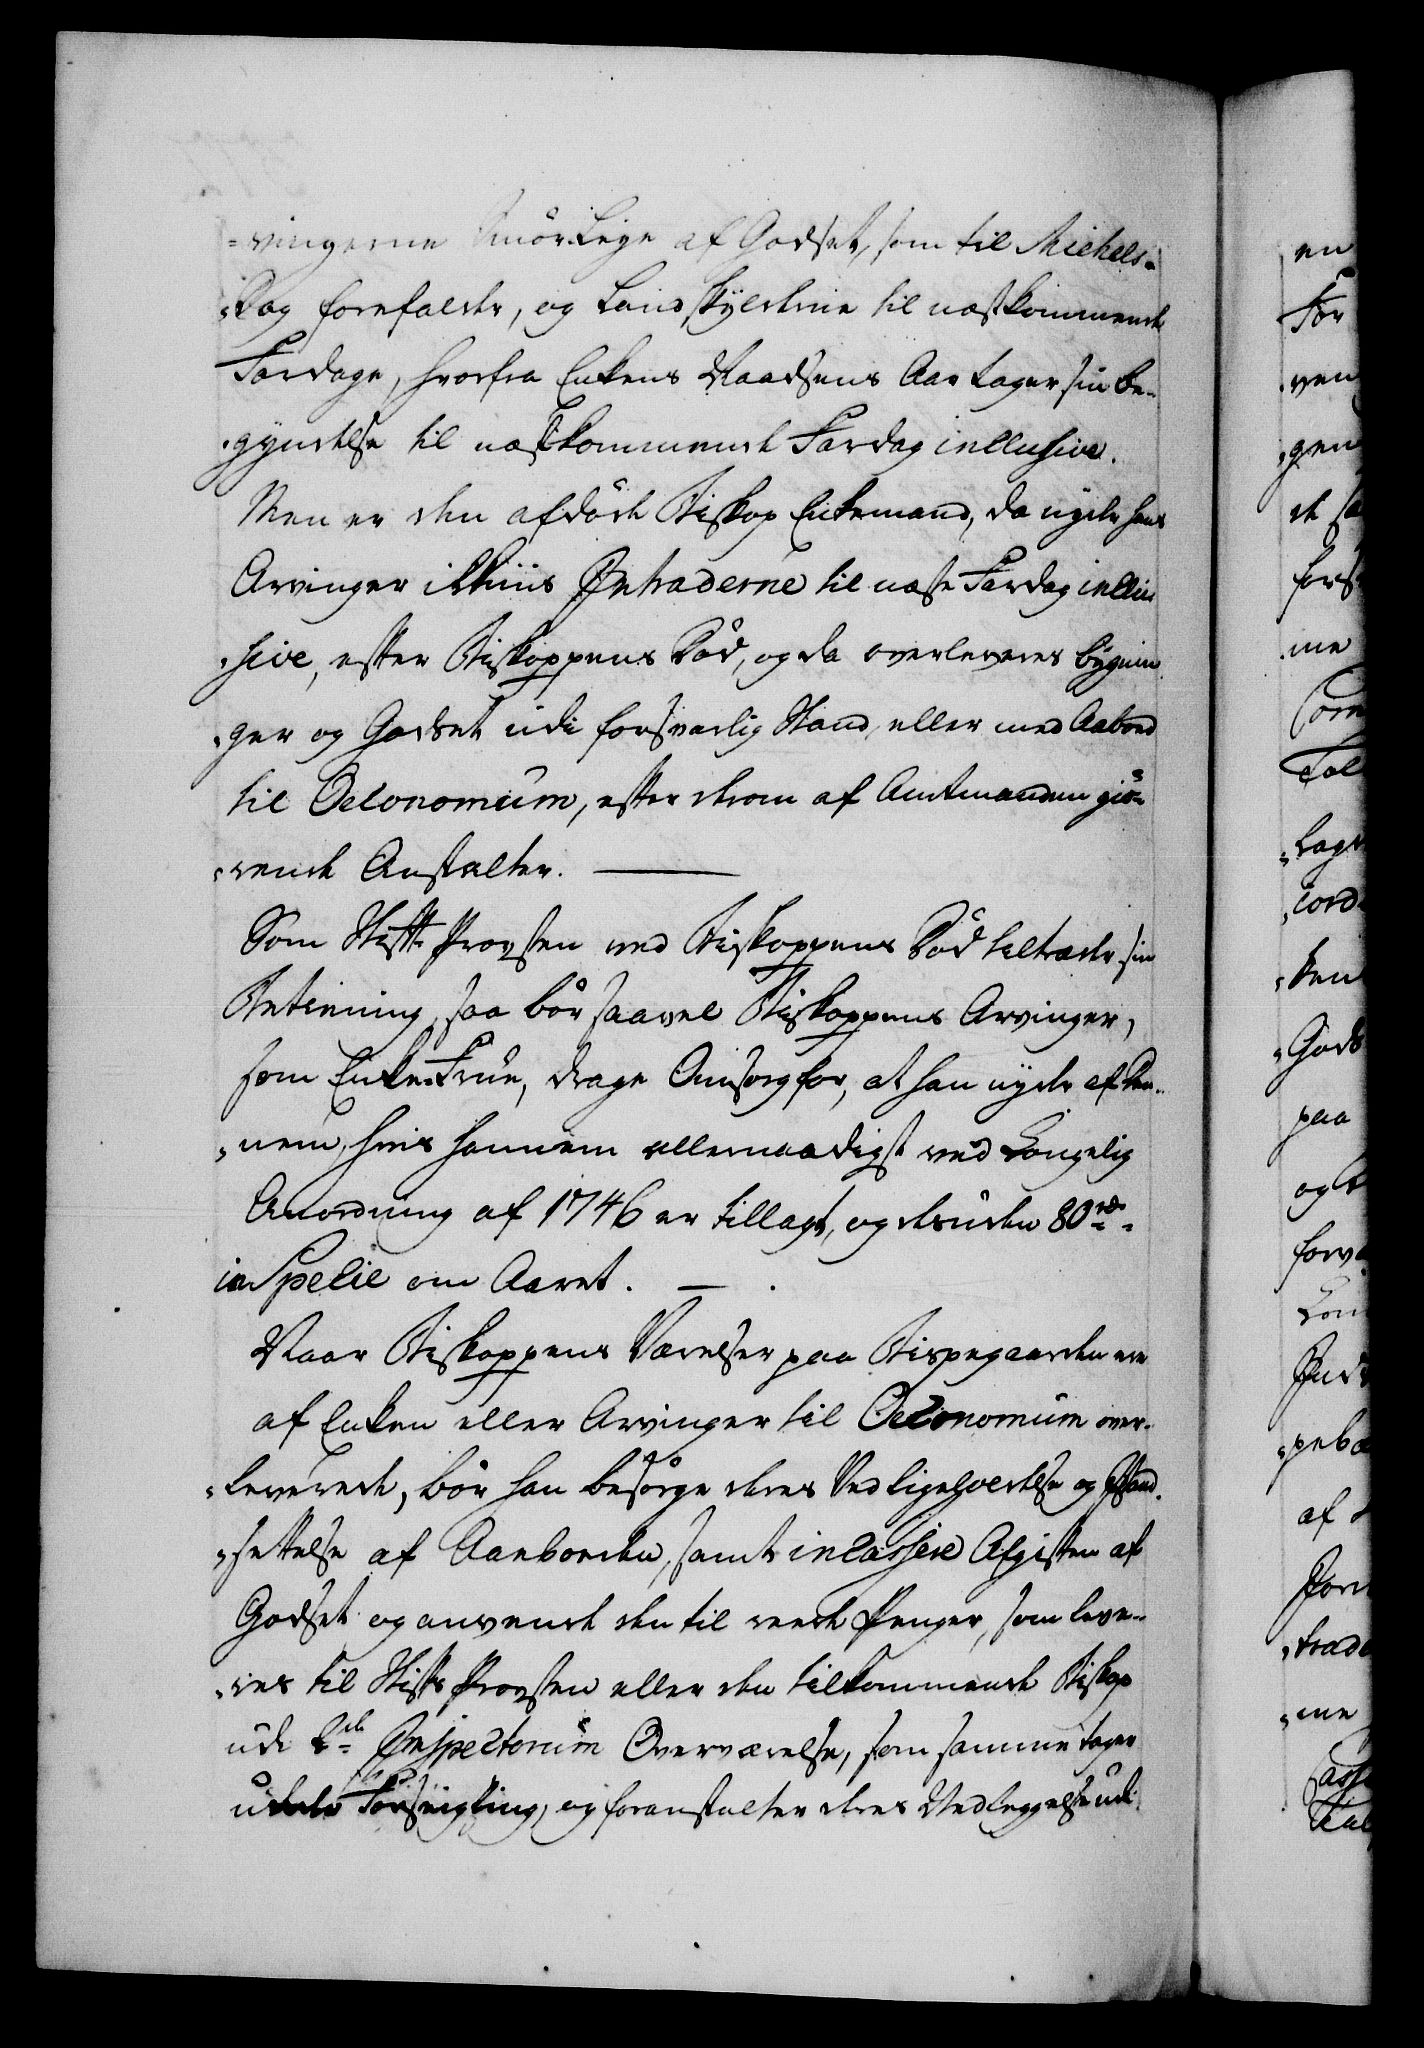 -vingerne Smör-Leye af Godset, som til Michels-
-Dag forefalder, og Landskyldene til næstkommende
Fardage, hvorfra Enkens Naadsens Aar tager sin Be-
-gyndelse til næstkommende Fardag inclusive.
Men er den afdöde Biskop Enkemand, da nyder hans
Arvinger ikkuns Intraderne til næste Fardag inclu
-sive, efter Biskoppens Död, og da overleveres Bygnin
-ger og Godset udi forsvarlig Stand, eller med Aabod
til Oeconomum, efter derom af Amtmanden giö-
-rende Anstalter.
Som Stifts-Provsten ved Biskoppens Död tiltræder sin
Betiening, saa bör saavel Biskoppens Arvinger,
som Enke-Frue, drage Omsorg for, at han nyder af Den-
-nem, hvis hannem allernaadigst ved Kongelig
Anordning af 1746 er tillagt, og desuden 80 rd.
in Specie om Aaret.
Naar Biskoppens Værelser paa Bispegaarden ere
af Enken eller Arvinger til Oeconomum over-
-leverede, bör han besörge deres Vedligeholdelse og Istand-
-settelse af Aaboeden, samt incassere Afgiften af
Godset og anvende den til rede Penger, som leve-
-res til Stifts Provsten eller den tilkommende Biskop
udi Inspectorum Overværelse, som samme tager
under Forseigling, og foranstalter deres Nedleggelse udi
en
For